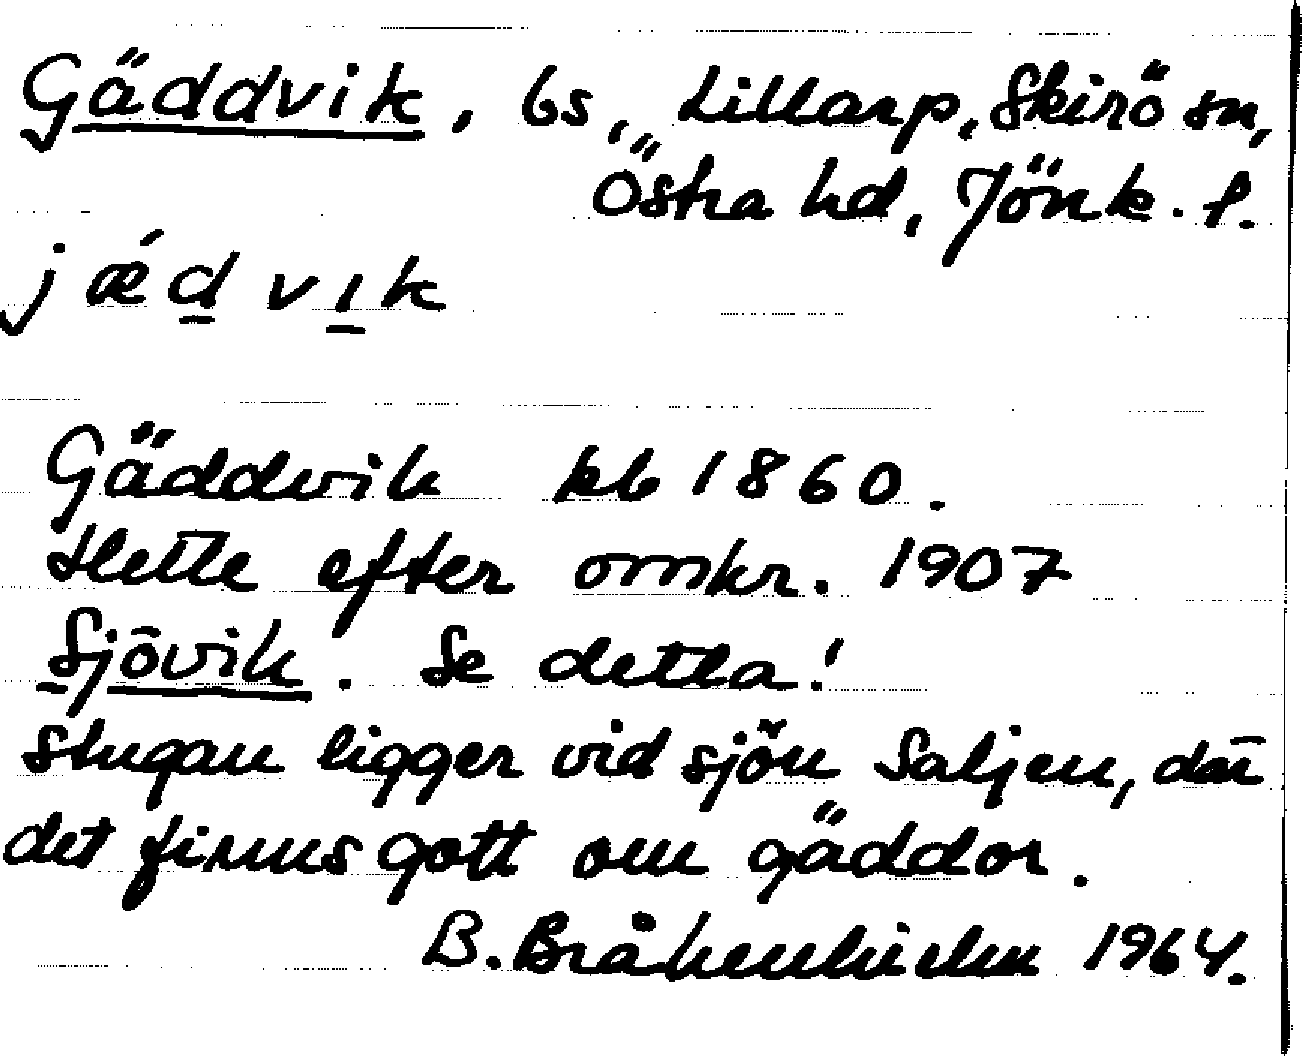 Gäddvik, bs, Lillarp, Skirö sn,
Östra hd, Jönk. l.
jǽd vık
Gäddvik kb 1860.
Hette efter omkr. 1907
Sjövik. Se detta!
Stugan ligger vid sjön Saljen, där
det finns gott om gäddor.
B. 1964.